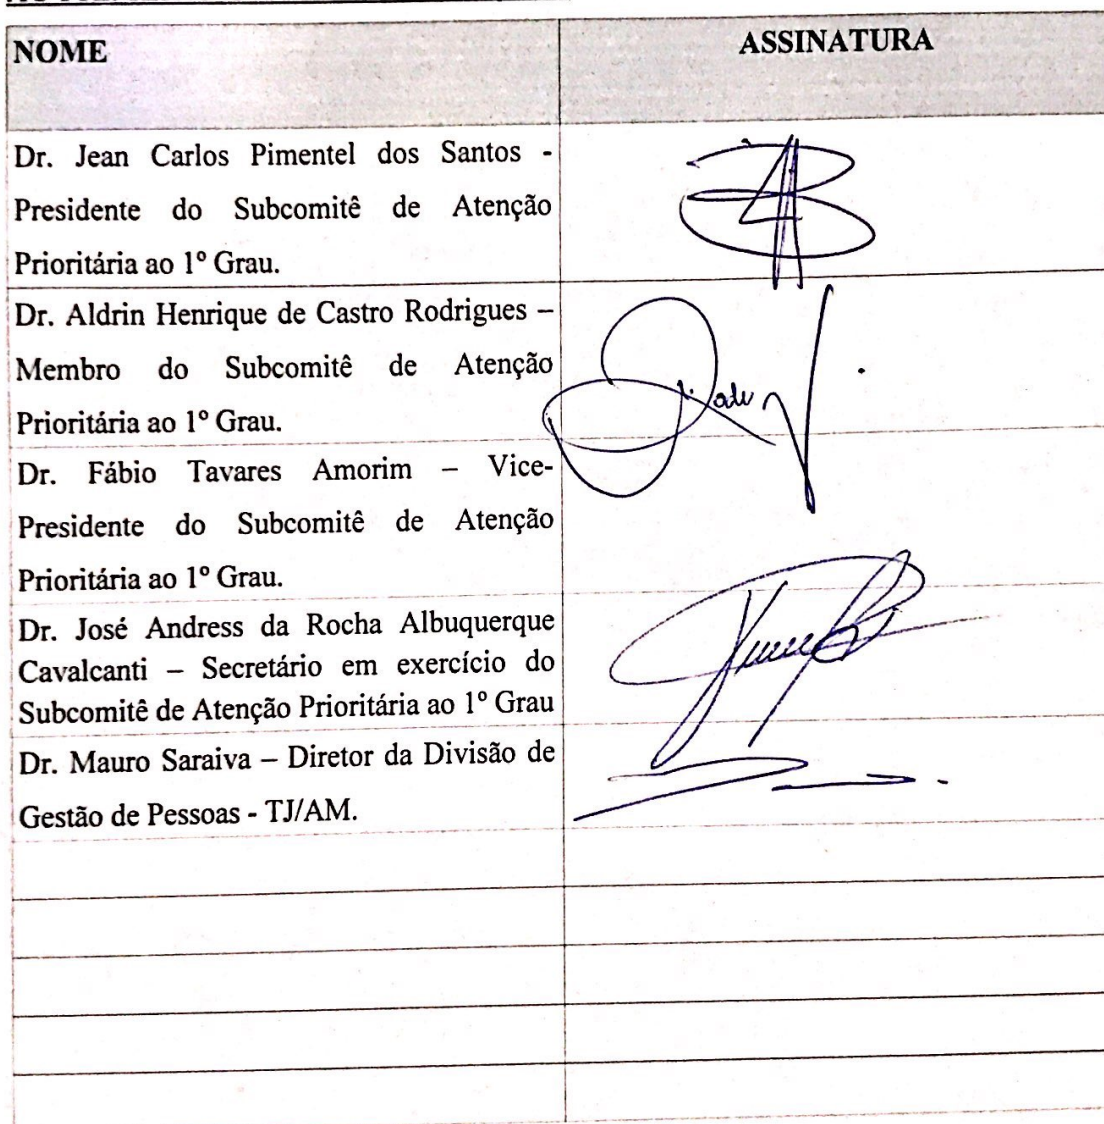 NOME
ASSINATURA
Dr. Jean Carlos Pimentel dos Santos -
Presidente do Subcomitê de Atenção
Prioritária ao 1º Grau.
Dr. Aldrin Henrique de Castro Rodrigues –
Membro do Subcomitê de Atenção
Prioritária ao 1º Grau.
Dr. Fábio Tavares Amorim – Vice-
Presidente do Subcomitê de Atenção
Prioritária ao 1º Grau.
Dr. José Andress da Rocha Albuquerque
Cavalcanti – Secretário em exercício do
Subcomitê de Atenção Prioritária ao 1º Grau
Dr. Mauro Saraiva – Diretor da Divisão de
Gestão de Pessoas - TJ/AM.